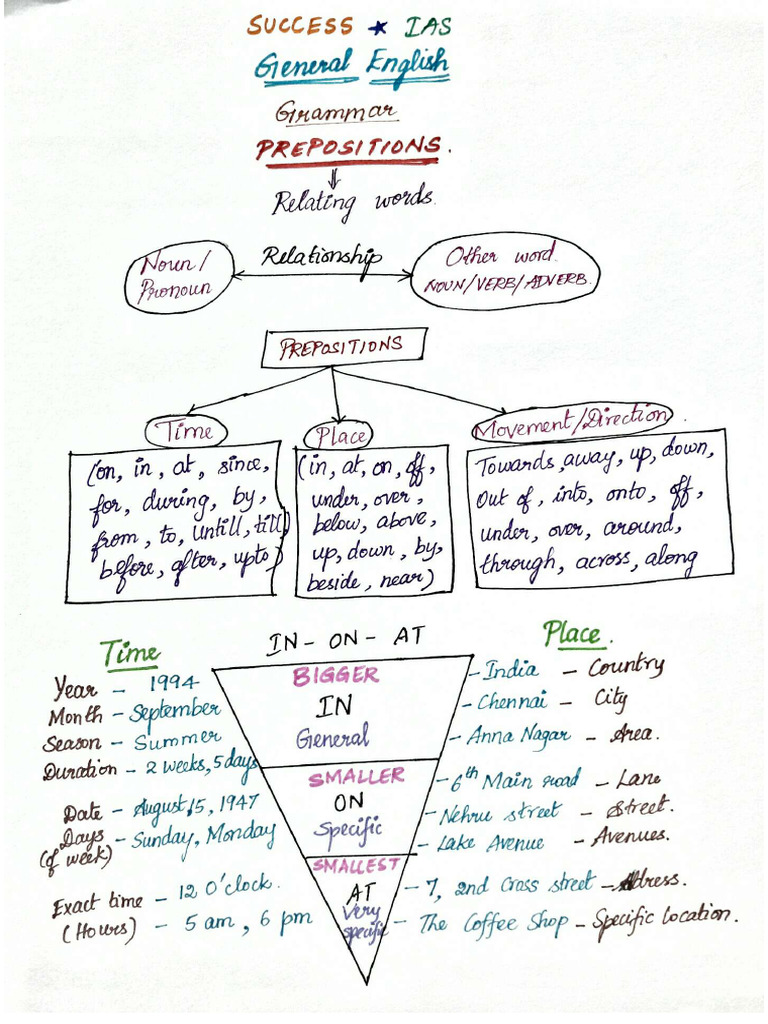 SUCCESS ★ IAS
General English
Grammar
PREPOSITIONS.
Relating words.
Noun/
Pronoun
Relationship
Other word.
NOUN/VERB/ADVERB.
PREPOSITIONS
Time
(on, in, at, since,
for, during, by,
from, to, untill, till)
before, after, upto)
Place
(in, at, on, off,
under, over,
below, above,
up, down, by,
beside, near)
Movement/Direction.
Towards, away, up, down,
Out of, into, onto, off,
under, over, around,
through, across, along
IN - ON - AT
Time
Year - 1994
Month - September
Season - Summer
Duration - 2 weeks, 5 days
Date - August 15, 1947
Days - Sunday, Monday
(of week)
Exact time - 12 O'clock.
(Hours) - 5 am, 6 pm
BIGGER
IN
General
SMALLER
ON
Specific
SMALLEST
AT
Very
specific
Place.
- India - Country
- Chennai - City
- Anna Nagar - Area.
- 6th Main road - Lane
- Nehru street - Street.
- Lake Avenue - Avenues.
- 7, 2nd Cross street - Address.
- The Coffee Shop - Specific location.